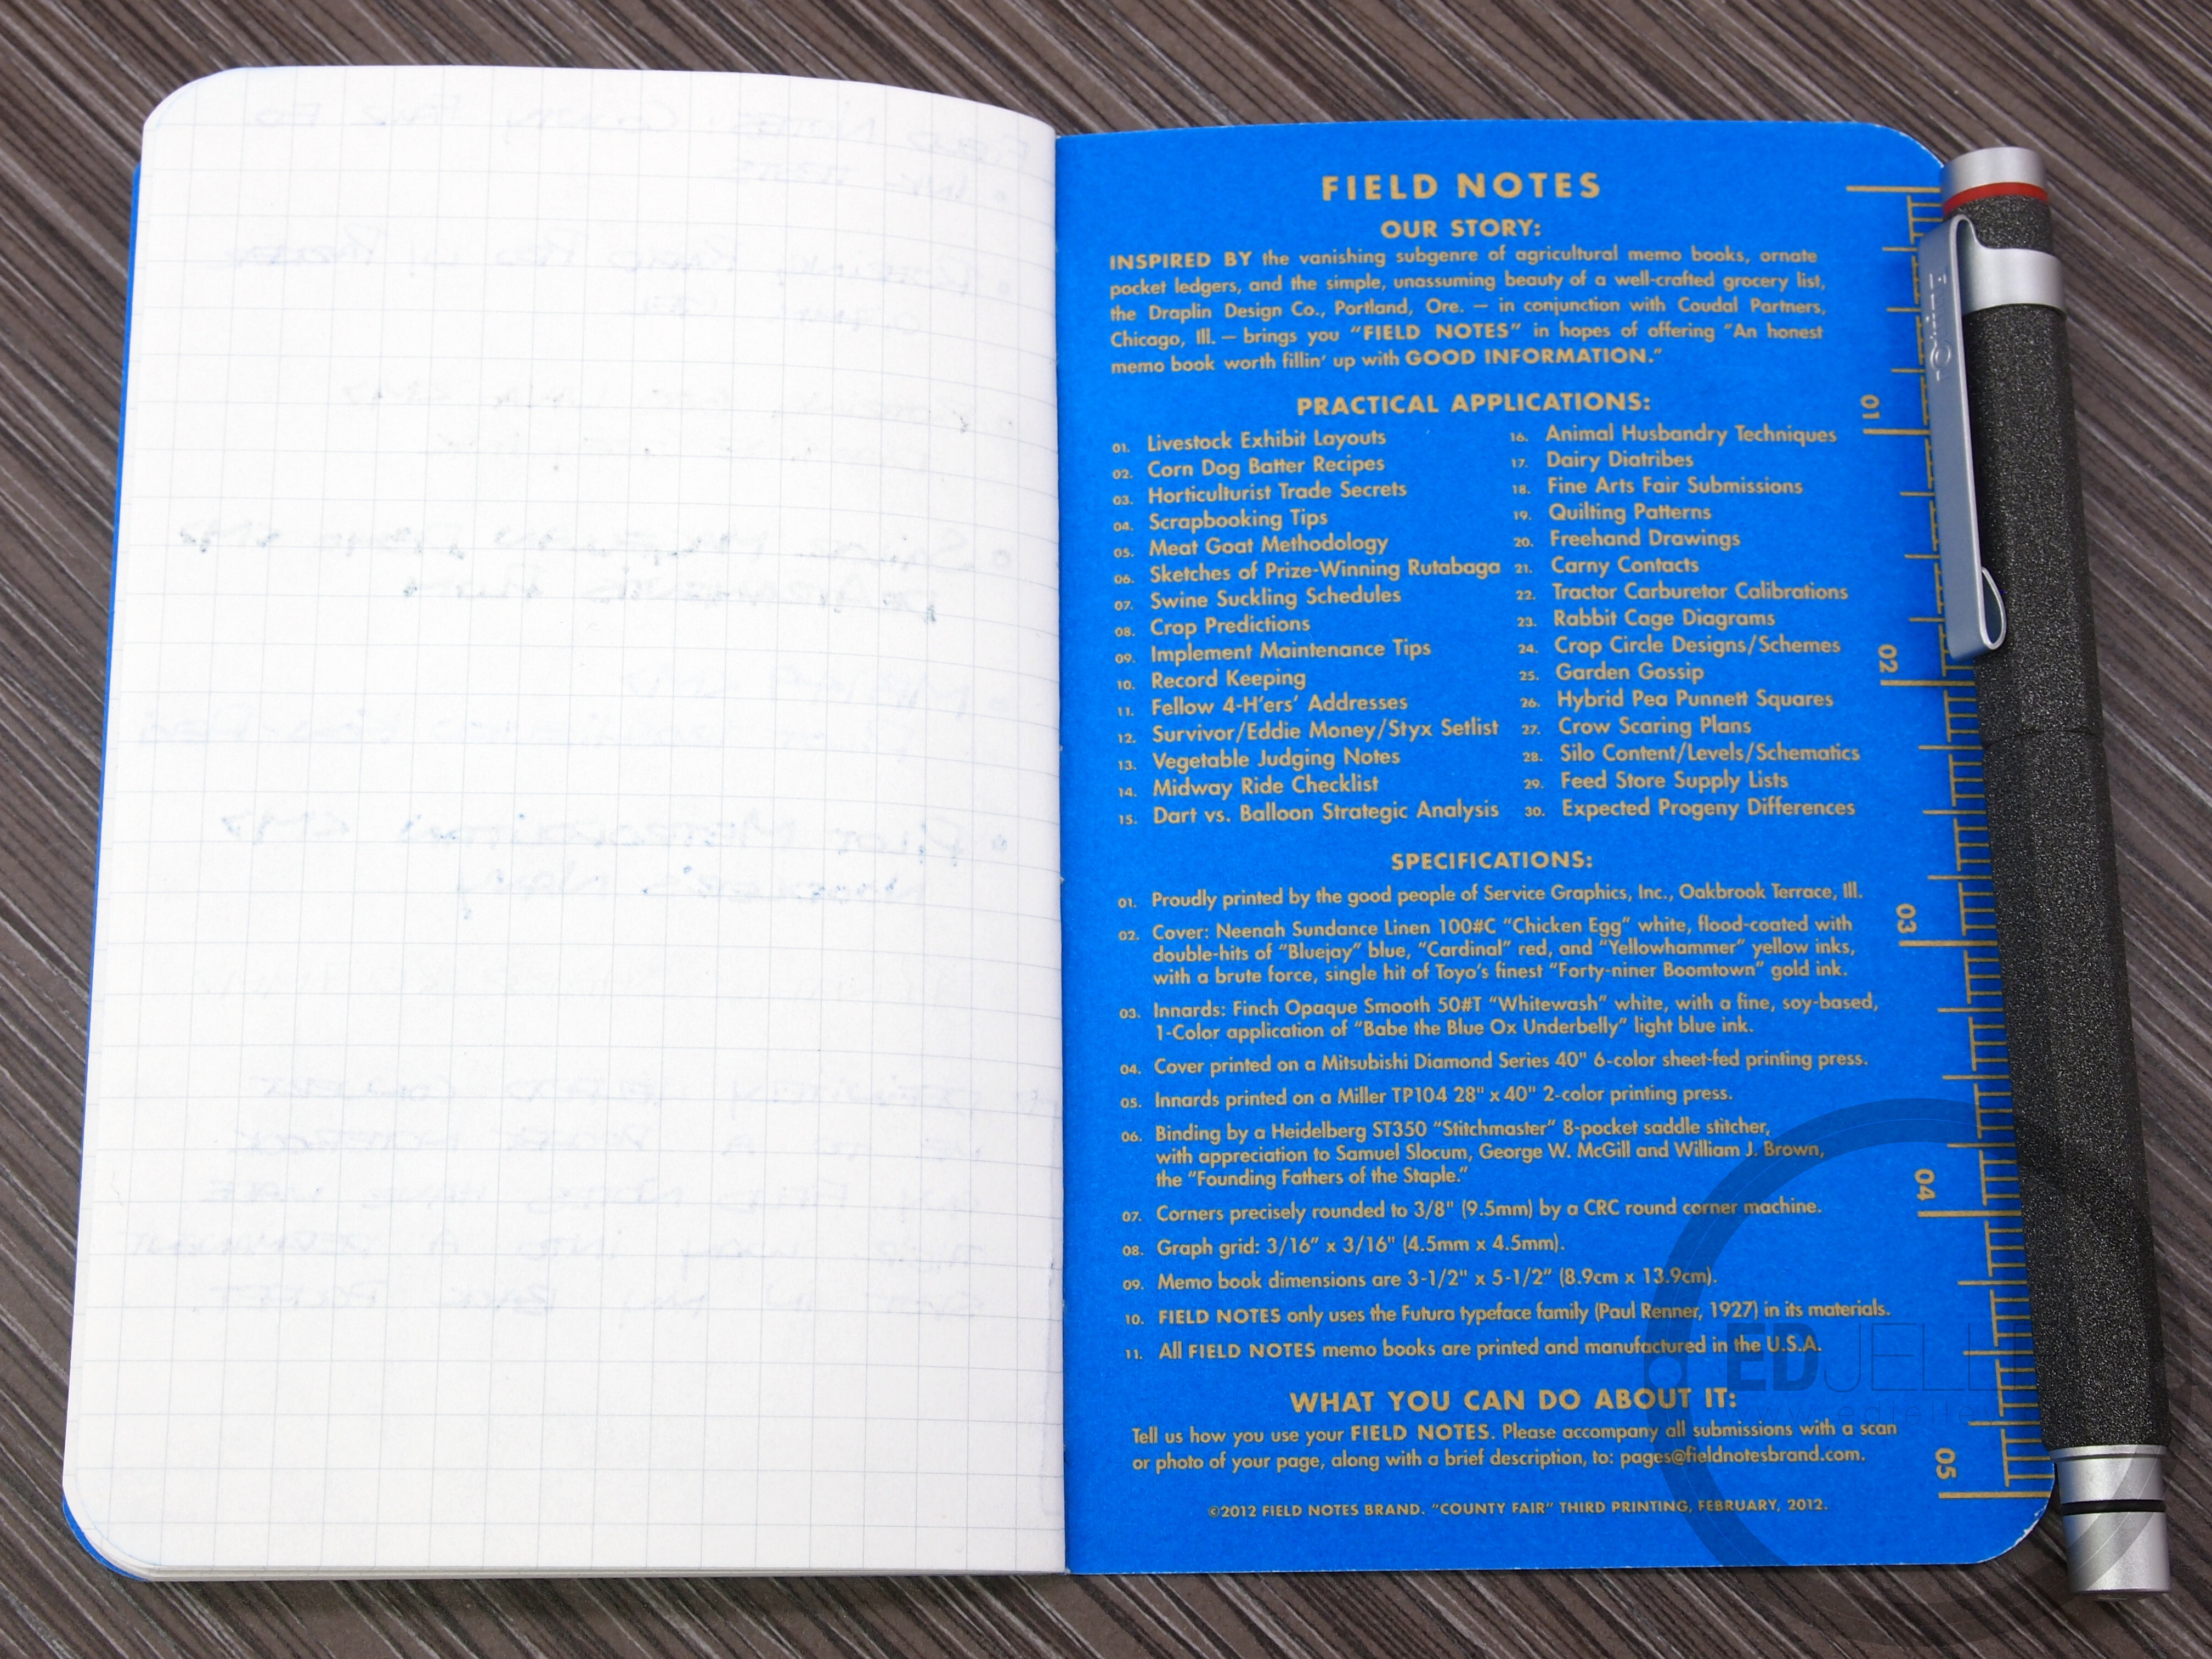 FIELD NOTES
OUR STORY:
INSPIRED BY the vanishing subgenre of agricultural memo books, ornate
pocket ledgers, and the simple, unassuming beauty of a well-crafted grocery list,
the Draplin Design Co., Portland, Ore. — in conjunction with Coudal Partners,
Chicago, Ill. — brings you “FIELD NOTES” in hopes of offering “An honest
memo book worth fillin’ up with GOOD INFORMATION.”
PRACTICAL APPLICATIONS:
01. Livestock Exhibit Layouts
02. Corn Dog Batter Recipes
03. Horticulturist Trade Secrets
04. Scrapbooking Tips
05. Meat Goat Methodology
06. Sketches of Prize-Winning Rutabaga
07. Swine Suckling Schedules
08. Crop Predictions
09. Implement Maintenance Tips
10. Record Keeping
11. Fellow 4-H’ers’ Addresses
12. Survivor/Eddie Money/Styx Setlist
13. Vegetable Judging Notes
14. Midway Ride Checklist
15. Dart vs. Balloon Strategic Analysis
16. Animal Husbandry Techniques
17. Dairy Diatribes
18. Fine Arts Fair Submissions
19. Quilting Patterns
20. Freehand Drawings
21. Carny Contacts
22. Tractor Carburetor Calibrations
23. Rabbit Cage Diagrams
24. Crop Circle Designs/Schemes
25. Garden Gossip
26. Hybrid Pea Punnett Squares
27. Crow Scaring Plans
28. Silo Content/Levels/Schematics
29. Feed Store Supply Lists
30. Expected Progeny Differences
SPECIFICATIONS:
01. Proudly printed by the good people of Service Graphics, Inc., Oakbrook Terrace, Ill.
02. Cover: Neenah Sundance Linen 100#C “Chicken Egg” white, flood-coated with
double-hits of “Bluejay” blue, “Cardinal” red, and “Yellowhammer” yellow inks,
with a brute force, single hit of Toyo’s finest “Forty-niner Boomtown” gold ink.
03. Innards: Finch Opaque Smooth 50#T “Whitewash” white, with a fine, soy-based,
1-Color application of “Babe the Blue Ox Underbelly” light blue ink.
04. Cover printed on a Mitsubishi Diamond Series 40" 6-color sheet-fed printing press.
05. Innards printed on a Miller TP104 28" x 40" 2-color printing press.
06. Binding by a Heidelberg ST350 “Stitchmaster” 8-pocket saddle stitcher,
with appreciation to Samuel Slocum, George W. McGill and William J. Brown,
the “Founding Fathers of the Staple.”
07. Corners precisely rounded to 3/8" (9.5mm) by a CRC round corner machine.
08. Graph grid: 3/16” x 3/16" (4.5mm x 4.5mm).
09. Memo book dimensions are 3-1/2" x 5-1/2” (8.9cm x 13.9cm).
10. FIELD NOTES only uses the Futura typeface family (Paul Renner, 1927) in its materials.
11. All FIELD NOTES memo books are printed and manufactured in the U.S.A.
WHAT YOU CAN DO ABOUT IT:
Tell us how you use your FIELD NOTES. Please accompany all submissions with a scan
or photo of your page, along with a brief description, to: pages@fieldnotesbrand.com.
©2012 FIELD NOTES BRAND. “COUNTY FAIR” THIRD PRINTING, FEBRUARY, 2012.
01
02
03
04
05
EDJELL